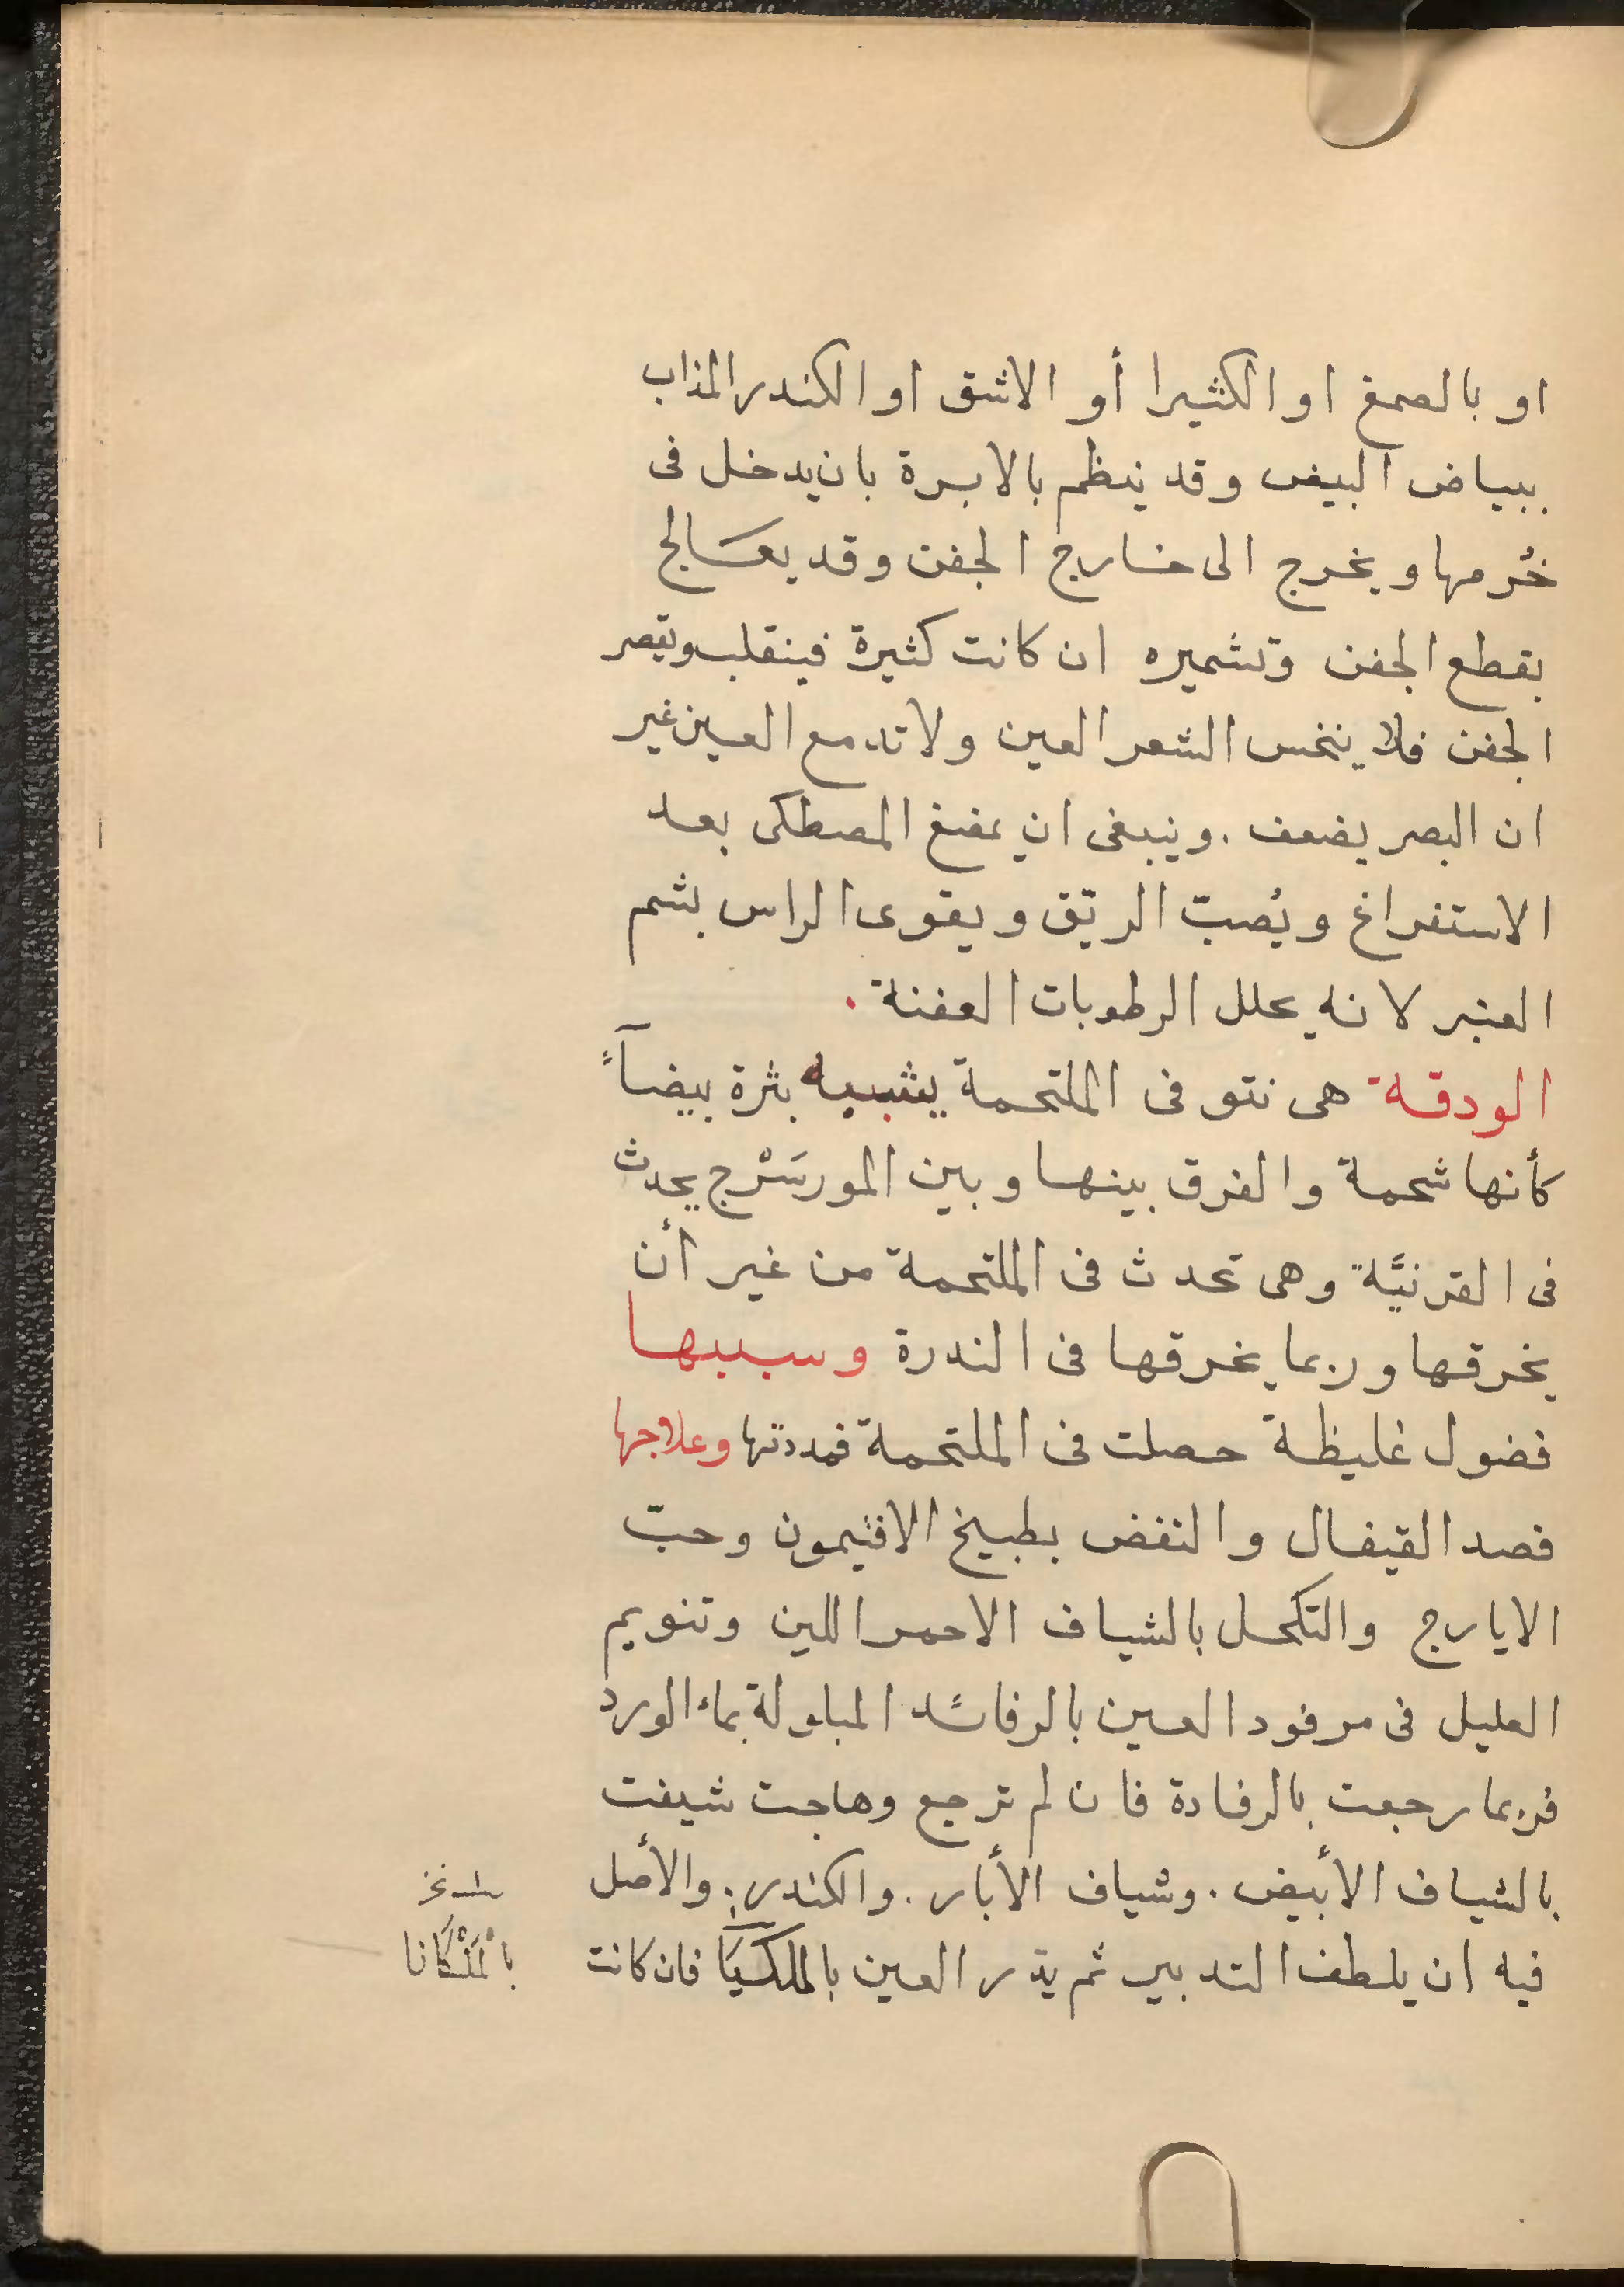 او بالصمغ او الكثيرا أو الاشق او الكندر المذاب
ببياض البيض وقد ينظم بالابرة بان يدخل فى
خُرمها ويخرج الى خارج الجفن وقد يعَالج
بقطع الجفن وتشميره ان كانت كثيرة فينقلب ويقصر
الجفن فلا ينخس الشعر العين ولا تدمع العين غير
ان البصر يضعف . وينبغى ان يمضغ المصطكى بعد
الاستفراغ ويُصبّ الريّق ويقوى الراس بشم
العنبر لانه يحلل الرطوبات العفنة .
الودقة هى نتو فى الملتحمة يشبه بثرة بيضآءً
كأنها شحمة والفرق بينها وبين المورسَرْج يحدث
فى القرنيَّة وهى تحدث فى الملتحمة من غير أن
يخرقها وربما يخرقها فى الندرة وسببها
فضول غليظة حصلت فى الملتحمة فمددتها وعلاجها
فصد القيفال والنفض بطبيخ الافتيمون وحبّ
الايارج والتكحل بالشياف الاحمر اللين وتنويم
العليل فى مرفود العين بالرفائد المبلولة بماء الورد
فربما رجعت بالرفادة فان لم ترجع وهاجت شيفت
بالشياف الأبيض . وشياف الأبار . والكندر . والأصل
فيه ان يلطف التدبير ثم يذر العين بالملكَيَا فان كانت
بالمَلْكَانا